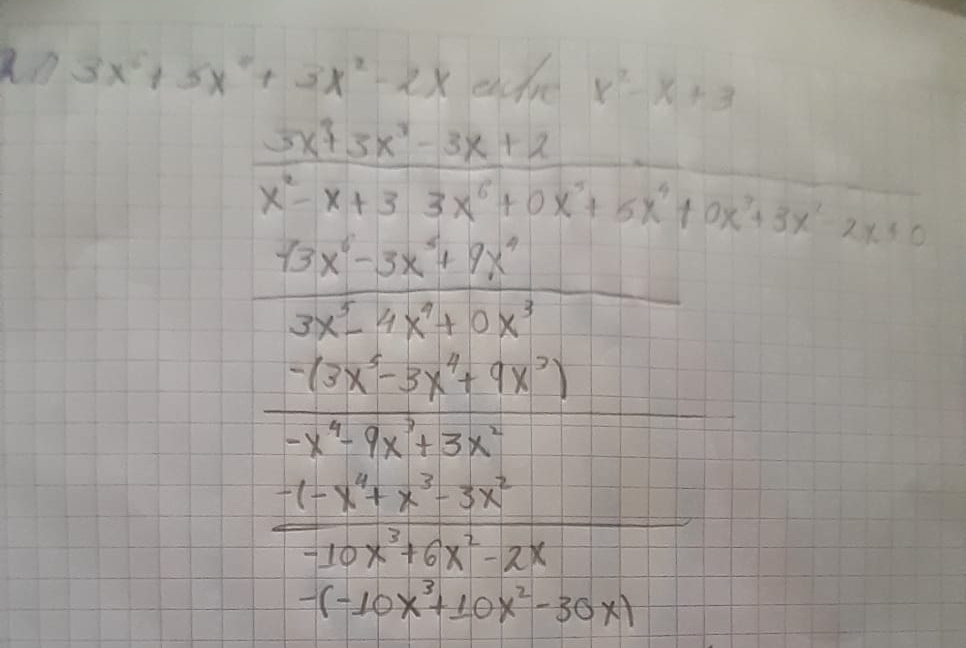 3x⁶ + 5x⁴ + 3x² - 2x entre x² - x + 3
3x⁴ + 3x³ - 3x + 2
x² - x + 3 3x⁶ + 0x⁵ + 5x⁴ + 0x³ + 3x² - 2x + 0
-(3x⁶ - 3x⁵ + 9x⁴
3x⁵ - 4x⁴ + 0x³
-(3x⁵ - 3x⁴ + 9x³)
-x⁴ - 9x³ + 3x²
-(-x⁴ + x³ - 3x²
-10x³ + 6x² - 2x
-(-10x³ + 10x² - 30x)